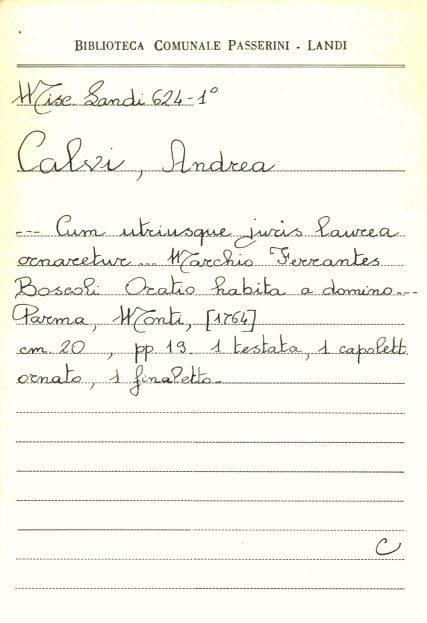 BIBLIOTECA COMUNALE PASSERINI - LANDI
Misc. Landi 624-1°
Calvi, Andrea
--- Cum utriusque juris laurea
ornaretur... Marchio Ferrantes
Boscoli Oratio habita a domino---
Parma, Monti, [1764]
cm. 20 , pp 19. 1 testata, 1 capolett.
ornato, 1 finaletto.
C